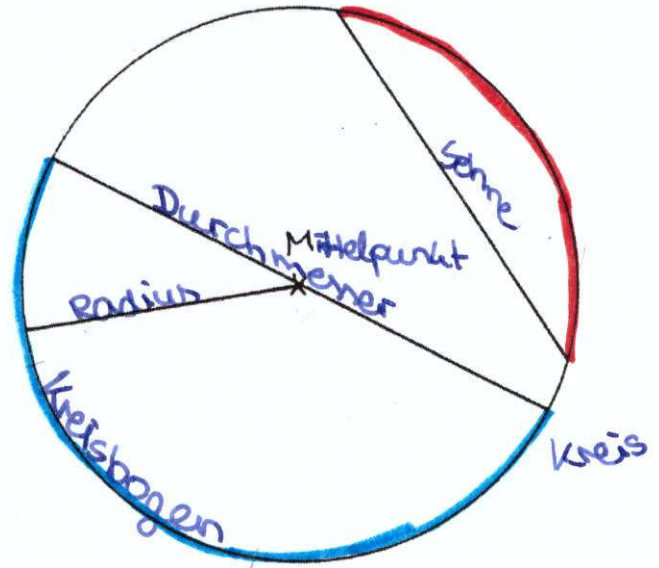 Sehne
Durchmesser
Mittelpunkt
Radius
Kreisbogen
Kreis